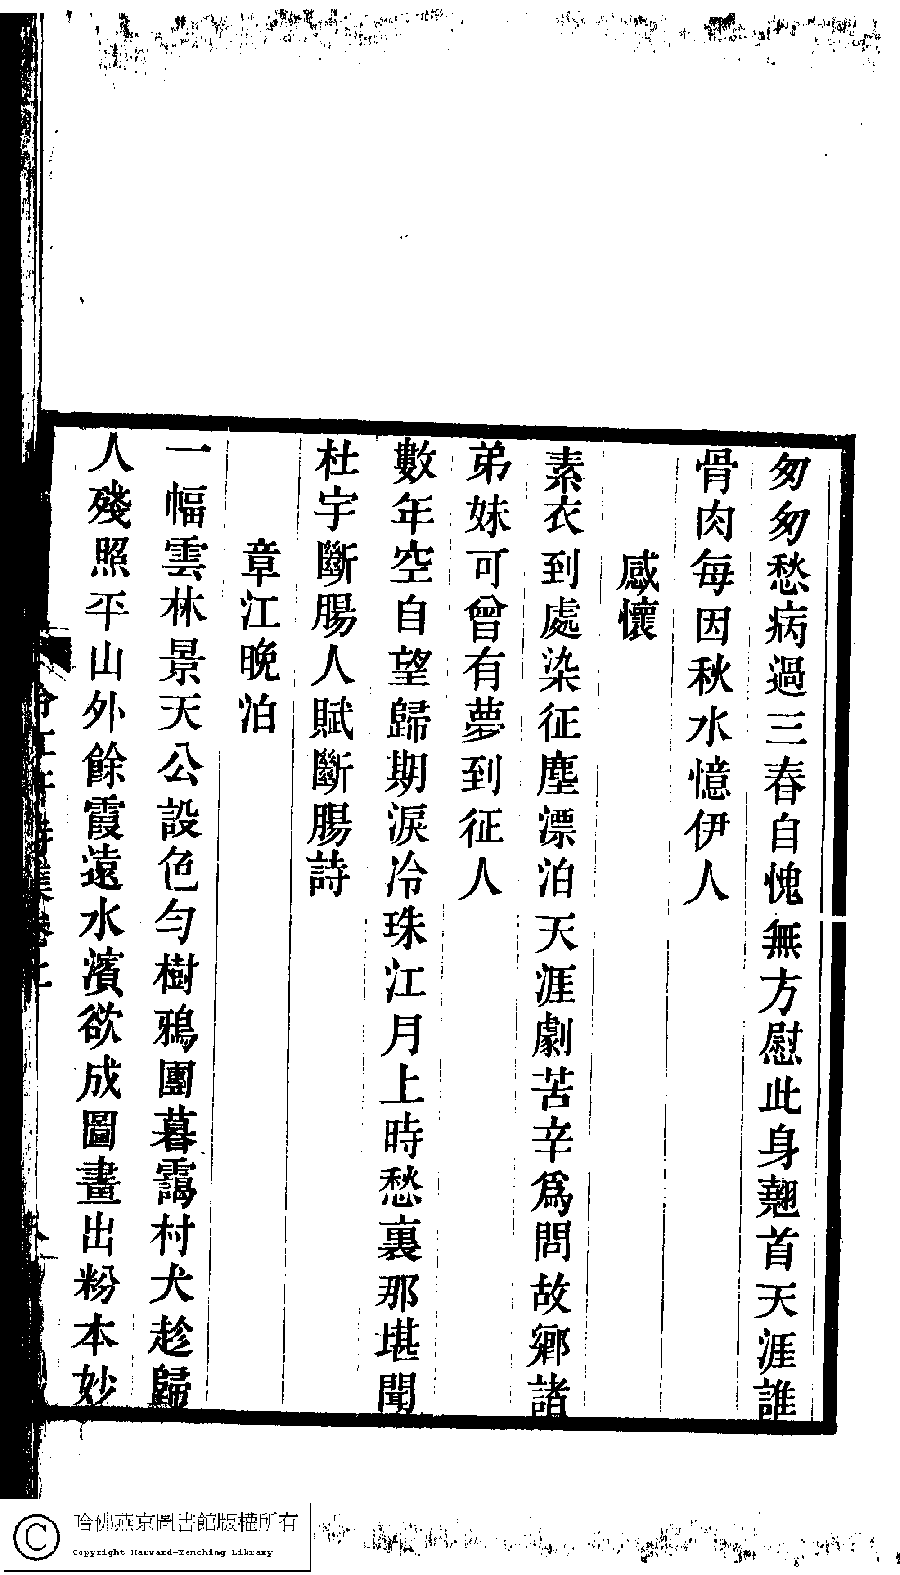 匆匆愁病過三春自愧無方慰此身翹首天涯誰
骨肉每因秋水憶伊人
感懷
素衣到處染征塵漂泊天涯劇苦辛爲問故鄉諸
弟妹可曾有夢到征人
數年空自望歸期淚冷珠江月上時愁裏那堪聞
杜宇斷腸人賦斷腸詩
章江晚泊
一幅雲林景天公設色勻樹鴉團暮靄村犬趁歸
人殘照平山外餘霞遠水濱欲成圖畫出粉本妙
哈佛燕京圖書館版權所有
Copyright Harvard-Yenching Library